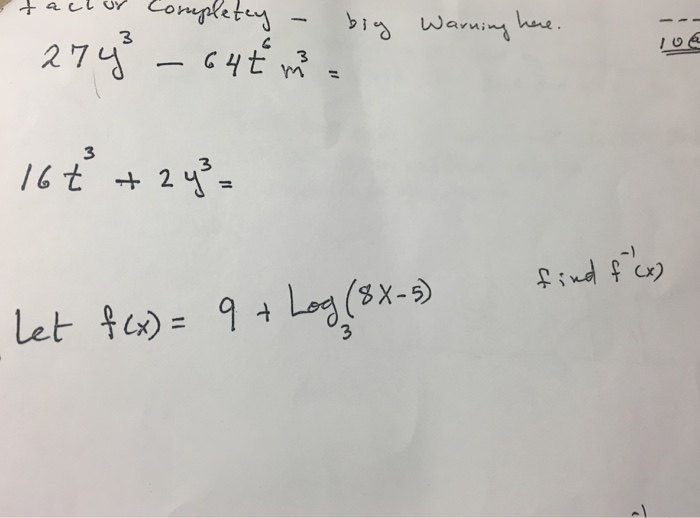 factor Completey - big Warning here.
27y³ - 64t⁶m³ =
16t³ + 2y³ =
Let f(x) = 9 + Log₃(8X-5) find f⁻¹(x)